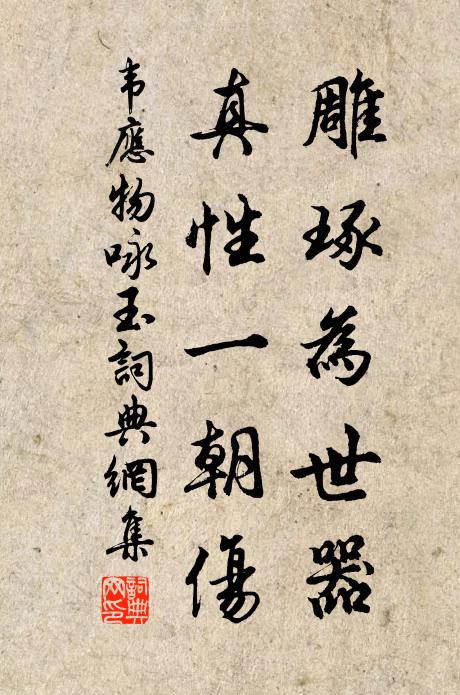 雕琢為世器
真性一朝傷
韦應物咏玉詞典網集
詞典
网印